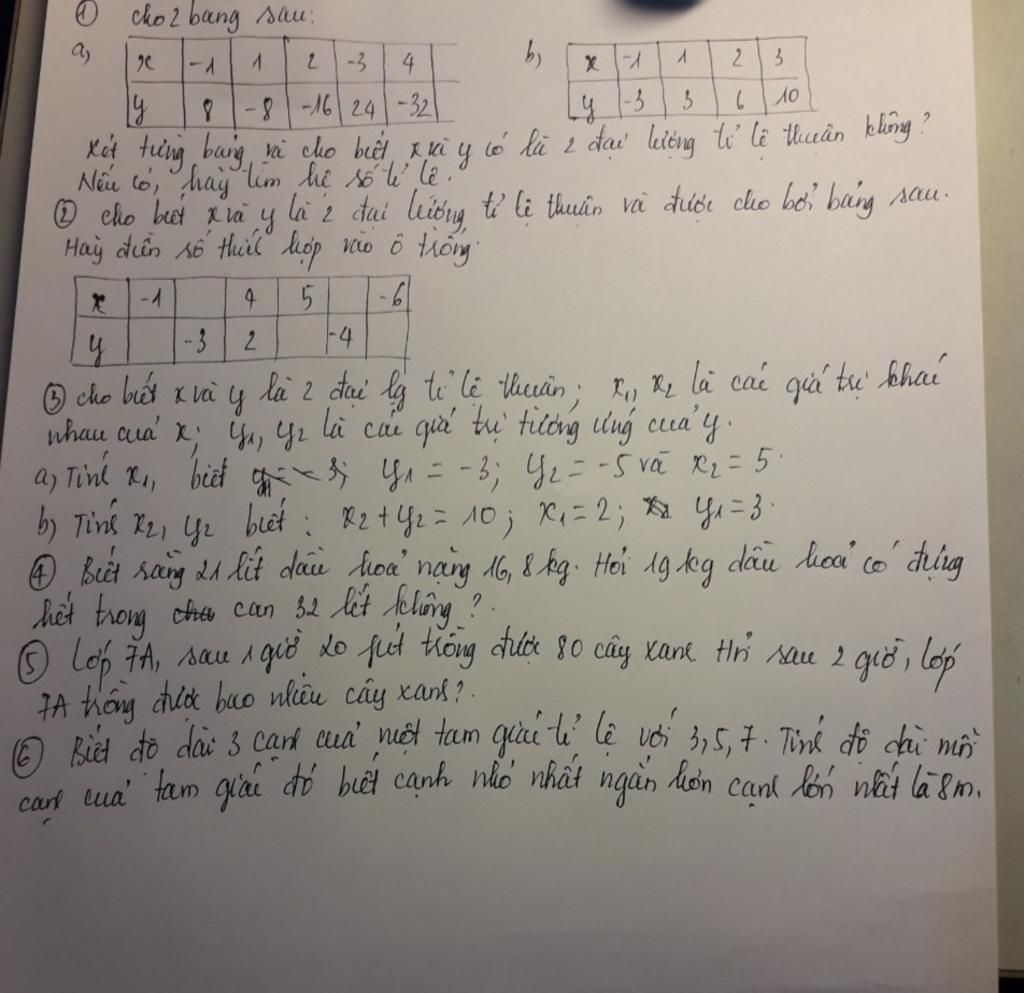 ① cho 2 bảng sau:
a) x -1 1 2 -3 4
y 8 -8 -16 24 -32
b) x -1 1 2 3
y -3 3 6 10
Xét từng bảng và cho biết x và y có là 2 đại lượng tỉ lệ thuận không?
Nếu có, hãy tìm hệ số tỉ lệ.
② cho biết x và y là 2 đại lượng tỉ lệ thuận và được cho bởi bảng sau.
Hãy điền số thích hợp vào ô trống:
x -1 4 5 -6
y -3 2 -4
③ cho biết x và y là 2 đại lg tỉ lệ thuận; x₁, x₂ là các giá trị khác
nhau của x; y₁, y₂ là các giá trị tương ứng của y.
a) Tính x₁, biết y₁ = -3; y₂ = -5 và x₂ = 5.
b) Tính x₂, y₂ biết: x₂ + y₂ = 10; x₁ = 2; y₁ = 3.
④ Biết rằng 21 lít dầu hoả nặng 16,8 kg. Hỏi 19 kg dầu hoả có đựng
hết trong can 32 lít không?
⑤ Lớp 7A, sau 1 giờ 20 phút trồng được 80 cây xanh. Hỏi sau 2 giờ, lớp
7A trồng được bao nhiêu cây xanh?
⑥ Biết độ dài 3 cạnh của một tam giác tỉ lệ với 3, 5, 7. Tính độ dài mỗi
cạnh của tam giác đó biết cạnh nhỏ nhất ngắn hơn cạnh lớn nhất là 8m.